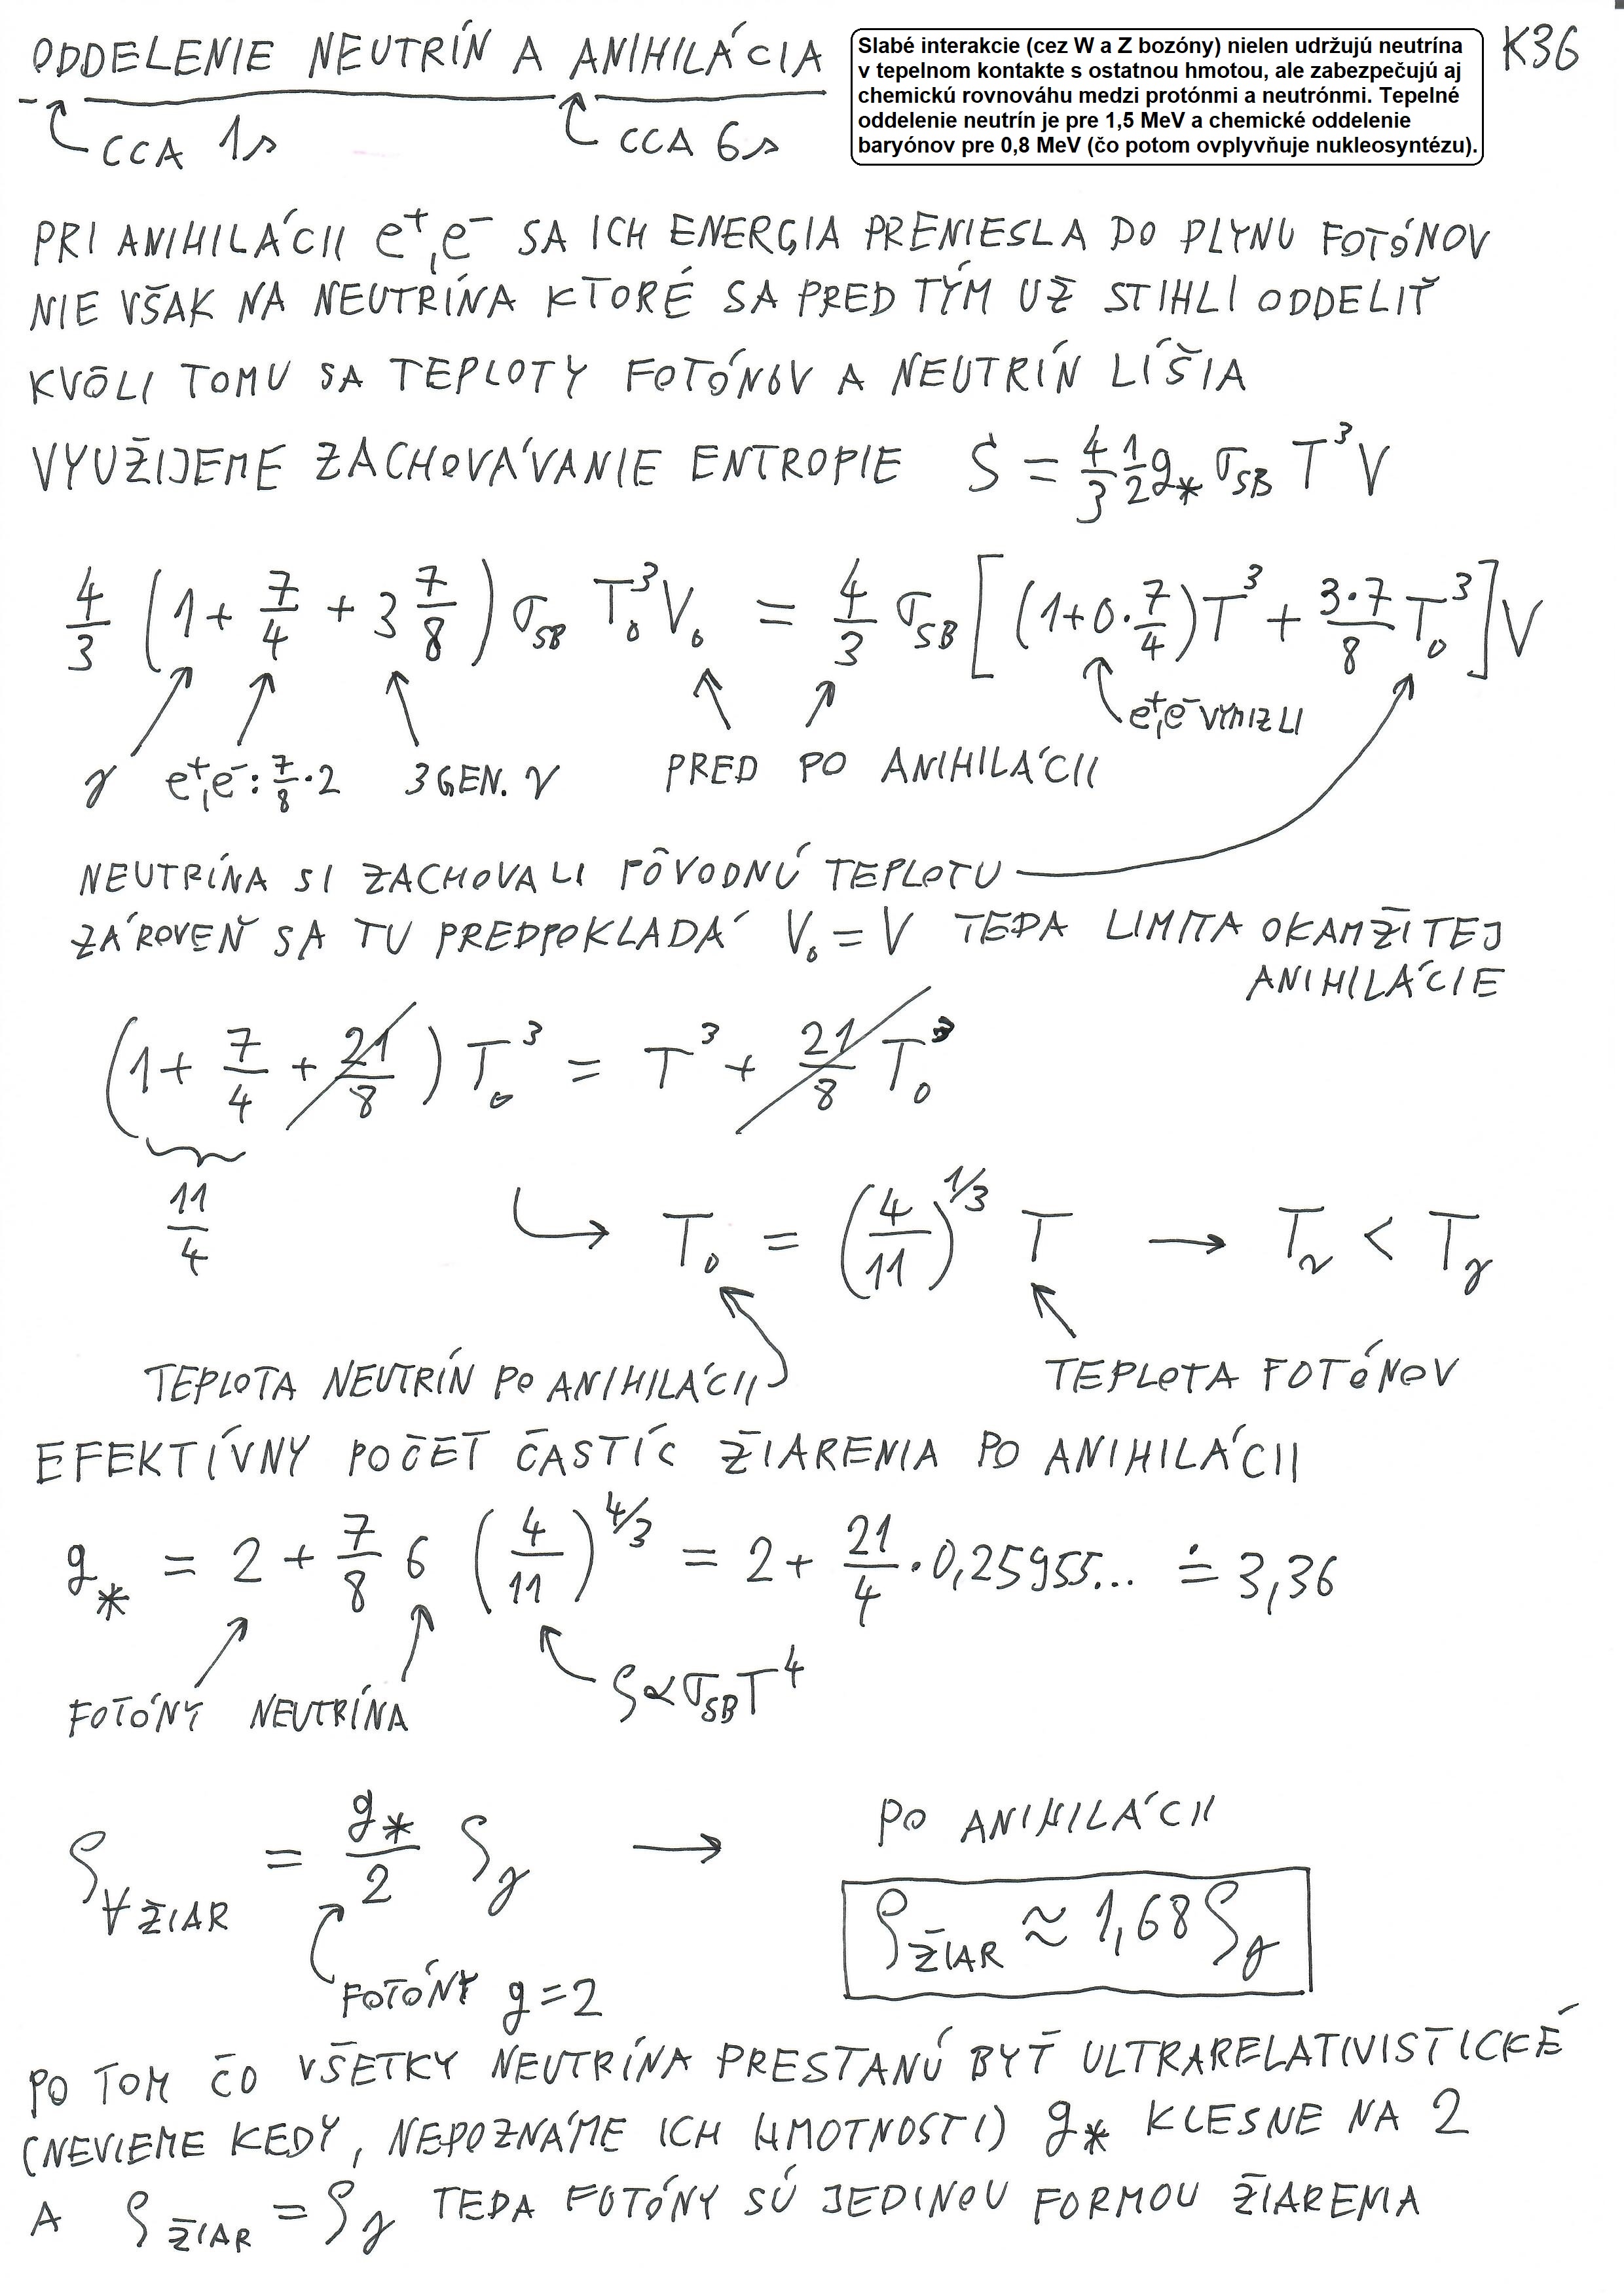 ODDELENIE NEUTRÍN A ANIHILÁCIA
K36
CCA 1s
CCA 6s
Slabé interakcie (cez W a Z bozóny) nielen udržujú neutrína
v tepelnom kontakte s ostatnou hmotou, ale zabezpečujú aj
chemickú rovnováhu medzi protónmi a neutrónmi. Tepelné
oddelenie neutrín je pre 1,5 MeV a chemické oddelenie
baryónov pre 0,8 MeV (čo potom ovplyvňuje nukleosyntézu).
PRI ANIHILÁCII e⁺,e⁻ SA ICH ENERGIA PRENIESLA DO PLYNU FOTÓNOV
NIE VŠAK NA NEUTRÍNA KTORÉ SA PRED TÝM UŽ STIHLI ODDELIŤ
KVÔLI TOMU SA TEPLOTY FOTÓNOV A NEUTRÍN LÍŠIA
VYUŽIJEME ZACHOVÁVANIE ENTROPIE S = 4/3 1/2 g_* σ_SB T³V
4/3 (1 + 7/4 + 3 7/8) σ_SB T₀³V₀ = 4/3 σ_SB [(1+0·7/4)T³ + 3·7/8 T₀³]V
e⁺,e⁻ VYMIZLI
γ e⁺,e⁻: 7/8·2 3 GEN. ν PRED PO ANIHILÁCII
NEUTRÍNA SI ZACHOVALI PÔVODNÚ TEPLOTU
ZÁROVEŇ SA TU PREDPOKLADÁ V₀ = V TEDA LIMITA OKAMŽITEJ
ANIHILÁCIE
(1 + 7/4 + 21/8) T₀³ = T³ + 21/8 T₀³
11/4
T₀ = (4/11)^1/3 T → T_ν < T_γ
TEPLOTA NEUTRÍN PO ANIHILÁCII
TEPLOTA FOTÓNOV
EFEKTÍVNY POČET ČASTÍC ŽIARENIA PO ANIHILÁCII
g_* = 2 + 7/8 6 (4/11)^4/3 = 2 + 21/4 · 0,25955... ≐ 3,36
FOTÓNY NEUTRÍNA ρ ∝ σ_SB T⁴
ρ_∀ŽIAR = g_*/2 ρ_γ →
FOTÓNY g = 2
PO ANIHILÁCII
ρ_ŽIAR ≈ 1,68 ρ_γ
PO TOM ČO VŠETKY NEUTRÍNA PRESTANÚ BYŤ ULTRARELATIVISTICKÉ
(NEVIEME KEDY, NEPOZNÁME ICH HMOTNOSTI) g_* KLESNE NA 2
A ρ_ŽIAR = ρ_γ TEDA FOTÓNY SÚ JEDINOU FORMOU ŽIARENIA